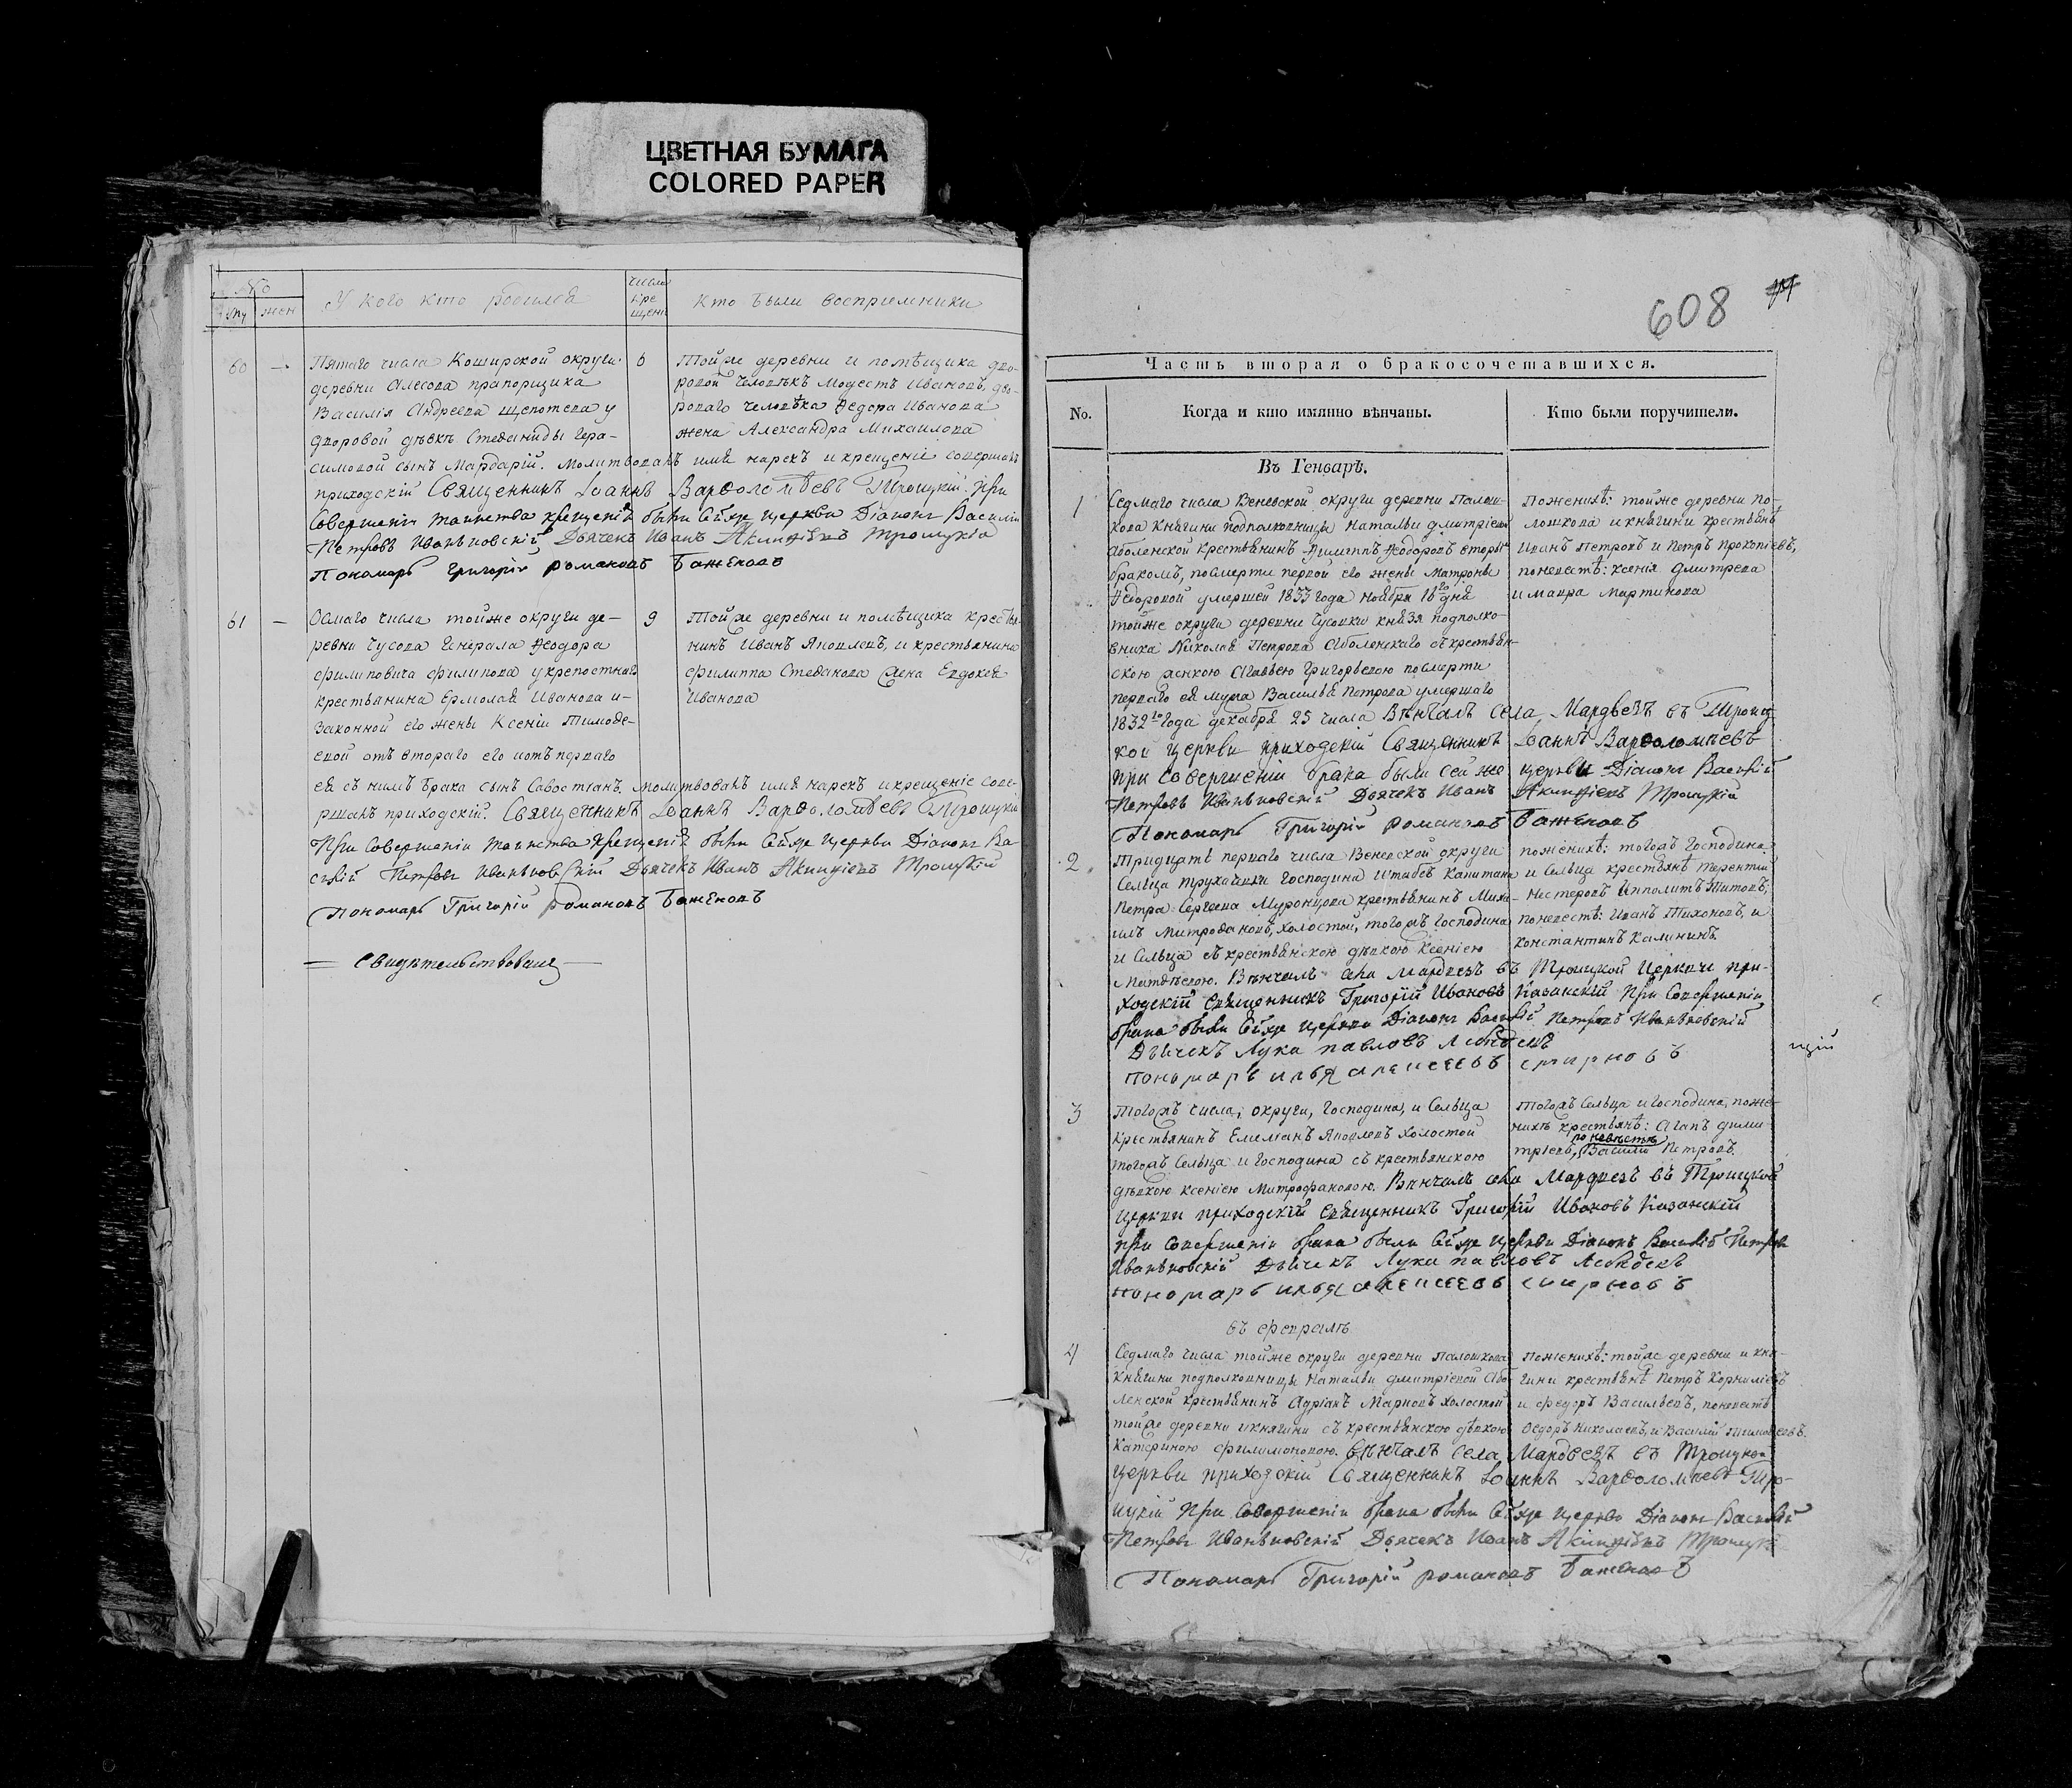 ЦВЕТНАЯ БУМАГА
COLORED PAPER
№
муж
жен
У кого кто родился
число
кре
щенія
кто были восприемники
60
Пятаго числа Коширской округи
деревни Алесова прапорщика
Василія Андреева Щепотева у
дворовой дѣвкѣ Стефаниды Гера-
симовой сынъ Мардарій. Молитвовалъ имя нарекъ и крещеніе совершалъ
приходскій Священникъ Іоаннъ Варѳоломѣевъ Троицкій. При
Совершеніи таинства крещенія были Сей же церкви Діаконъ Василій
Петровъ Иваньковскій, Дьячекъ Иванъ Акинфіевъ Троицкій
Пономарь Григорій Романовъ Баженовъ
6
Тойже деревни и помѣщика дво-
ровой человѣкъ Модестъ Ивановъ, дво-
роваго человѣка Ѳедора Иванова
жена Александра Михаилова
61
Осмаго числа тойже округи де-
ревни Чусова Генерала Ѳеодора
Филиповича Филипова у крепостнаго
крестьянина Ермолая Иванова и
законной его жены Ксеніи Тимоѳе-
евой отъ втораго его и отъ перваго
ея съ нимъ брака сынъ Савостіанъ. молитвовалъ имя нарекъ и крещеніе сове-
ршалъ приходскій Священникъ Іоаннъ Варѳоломѣевъ Троицкій
При Совершеніи таинства крещенія были Сей же церкви Діаконъ Ва
силій Петровъ Иваньковскій Дьячекъ Иванъ Акинфіевъ Троицкій
Пономарь Григорій Романовъ Баженовъ
9
Тойже деревни и помѣщика кресть-
нинъ Иванъ Яковлевъ, и крестьянина
Филиппа Стефанова жена Евдокея
Иванова
Свидѣтельствовалъ
608
Часть вторая о бракосочетавшихся.
No.
Когда и кто имянно вѣнчаны.
Кто были поручители.
Въ Генварѣ.
1
Седмаго числа Веневской округи деревни Палош-
кова Княгини подполковницы Натальи Дмитріевны
Аболенской крестьянинъ Филиппъ Ѳеодоровъ вторымъ
бракомъ, посмерти первой его жены Матроны
Ѳедоровой умершей 1833 года ноября 16го дня
тойже округи деревни Чусовки князя подполко-
вника Николая Петрова Аболенскаго съ крестьян-
скою женкою Агаѳьею Григорьевою посмерти
перваго ея мужа Василья Петрова умершаго
1832го года декабря 25 числа Вѣнчалъ села Мардвезъ въ Троиц
кой церкви приходскій Священникъ Іоаннъ Варѳоломѣевъ
при совершеніи брака были сей же церкви Діаконъ Василій
Петровъ Иваньковскій Дьячекъ Иванъ Акинфіевъ Троицкій
Пономарь Григорій Романовъ Баженовъ
поженихѣ: тойже деревни По-
лошкова и княгини крестьянѣ
Иванъ Петровъ и Петръ Прокопіевъ,
поневестѣ: Ксенія Дмитрева
и Мавра Мартинова
2
Тридцать перваго числа Веневской округи
Сельца Трухачевки Господина Штабсъ Капитана
Петра Сергеева Муромцова крестьянинъ Миха-
илъ Митрофановъ, холостой, тогожъ Господина
и Сельца съ крестьянскою дѣвкою Ксеніею
Матвѣевою. Вѣнчалъ села Мардвезъ въ Троицкой Церкви при-
ходскій Священникъ Григорій Ивановъ Казанскій При Совершеніи
брака были Сей же церкви Діаконъ Василій Петровъ Иваньковскій
Дьячекъ Лука Павловъ Лебедевъ
пономарь илья алексеевъ смирновъ
поженихѣ: тогожъ Господина
и Сельца крестьянѣ Терентій
Нестеровъ Ипполитъ Титовъ,
поневестѣ: Иванъ Тихоновъ, и
Константинъ Калининъ
3
Тогожъ числа, округи, Господина, и Сельца
крестьянинъ Емелианъ Яковлевъ холостой
тогожъ Сельца и Господина съ крестьянскою
дѣвкою Ксеніею Митрофановою. Вѣнчалъ села Мардвезъ въ Троицкой
Церкви приходскій Священникъ Григорій Ивановъ Казанскій
при Совершеніи брака были Сей же церкви Діаконъ Василій Петровъ
Иваньковскій Дьячекъ Лука павловъ Лебедевъ
пономарь илья алексеевъ смирновъ
Тогожъ Сельца и Господина, поже-
нихѣ крестьянѣ: Агапъ Дими-
поневѣстѣ
тріевъ, Василій Петровъ.
въ Февралѣ
4
Седмаго числа тойже округи деревни Палошкова
Княгини подполковницы Натальи Дмитріевой Обо
ленской крестьянинъ Адріанъ Марковъ холостой
тойже деревни и княгини съ крестьянскою дѣвкою
Катериною Филимоновою. Вѣнчалъ села Мардвезъ въ Троицкой
церкви приходскій Священникъ Іоаннъ Варѳоломѣевъ Тро-
ицкій При Совершеніи брака были Сей же церкви Діаконъ Василій
Петровъ Иваньковскій Дьячекъ Иванъ Акинфіевъ Троицкій
Пономарь Григорій Романовъ Баженовъ
поженихѣ: тойже деревни и кня-
гини крестьянѣ Петръ Корниліевъ
и Федоръ Васильевъ, поневестѣ
Ѳедоръ Николаевъ, и Василій Тимоѳеевъ.
цкій